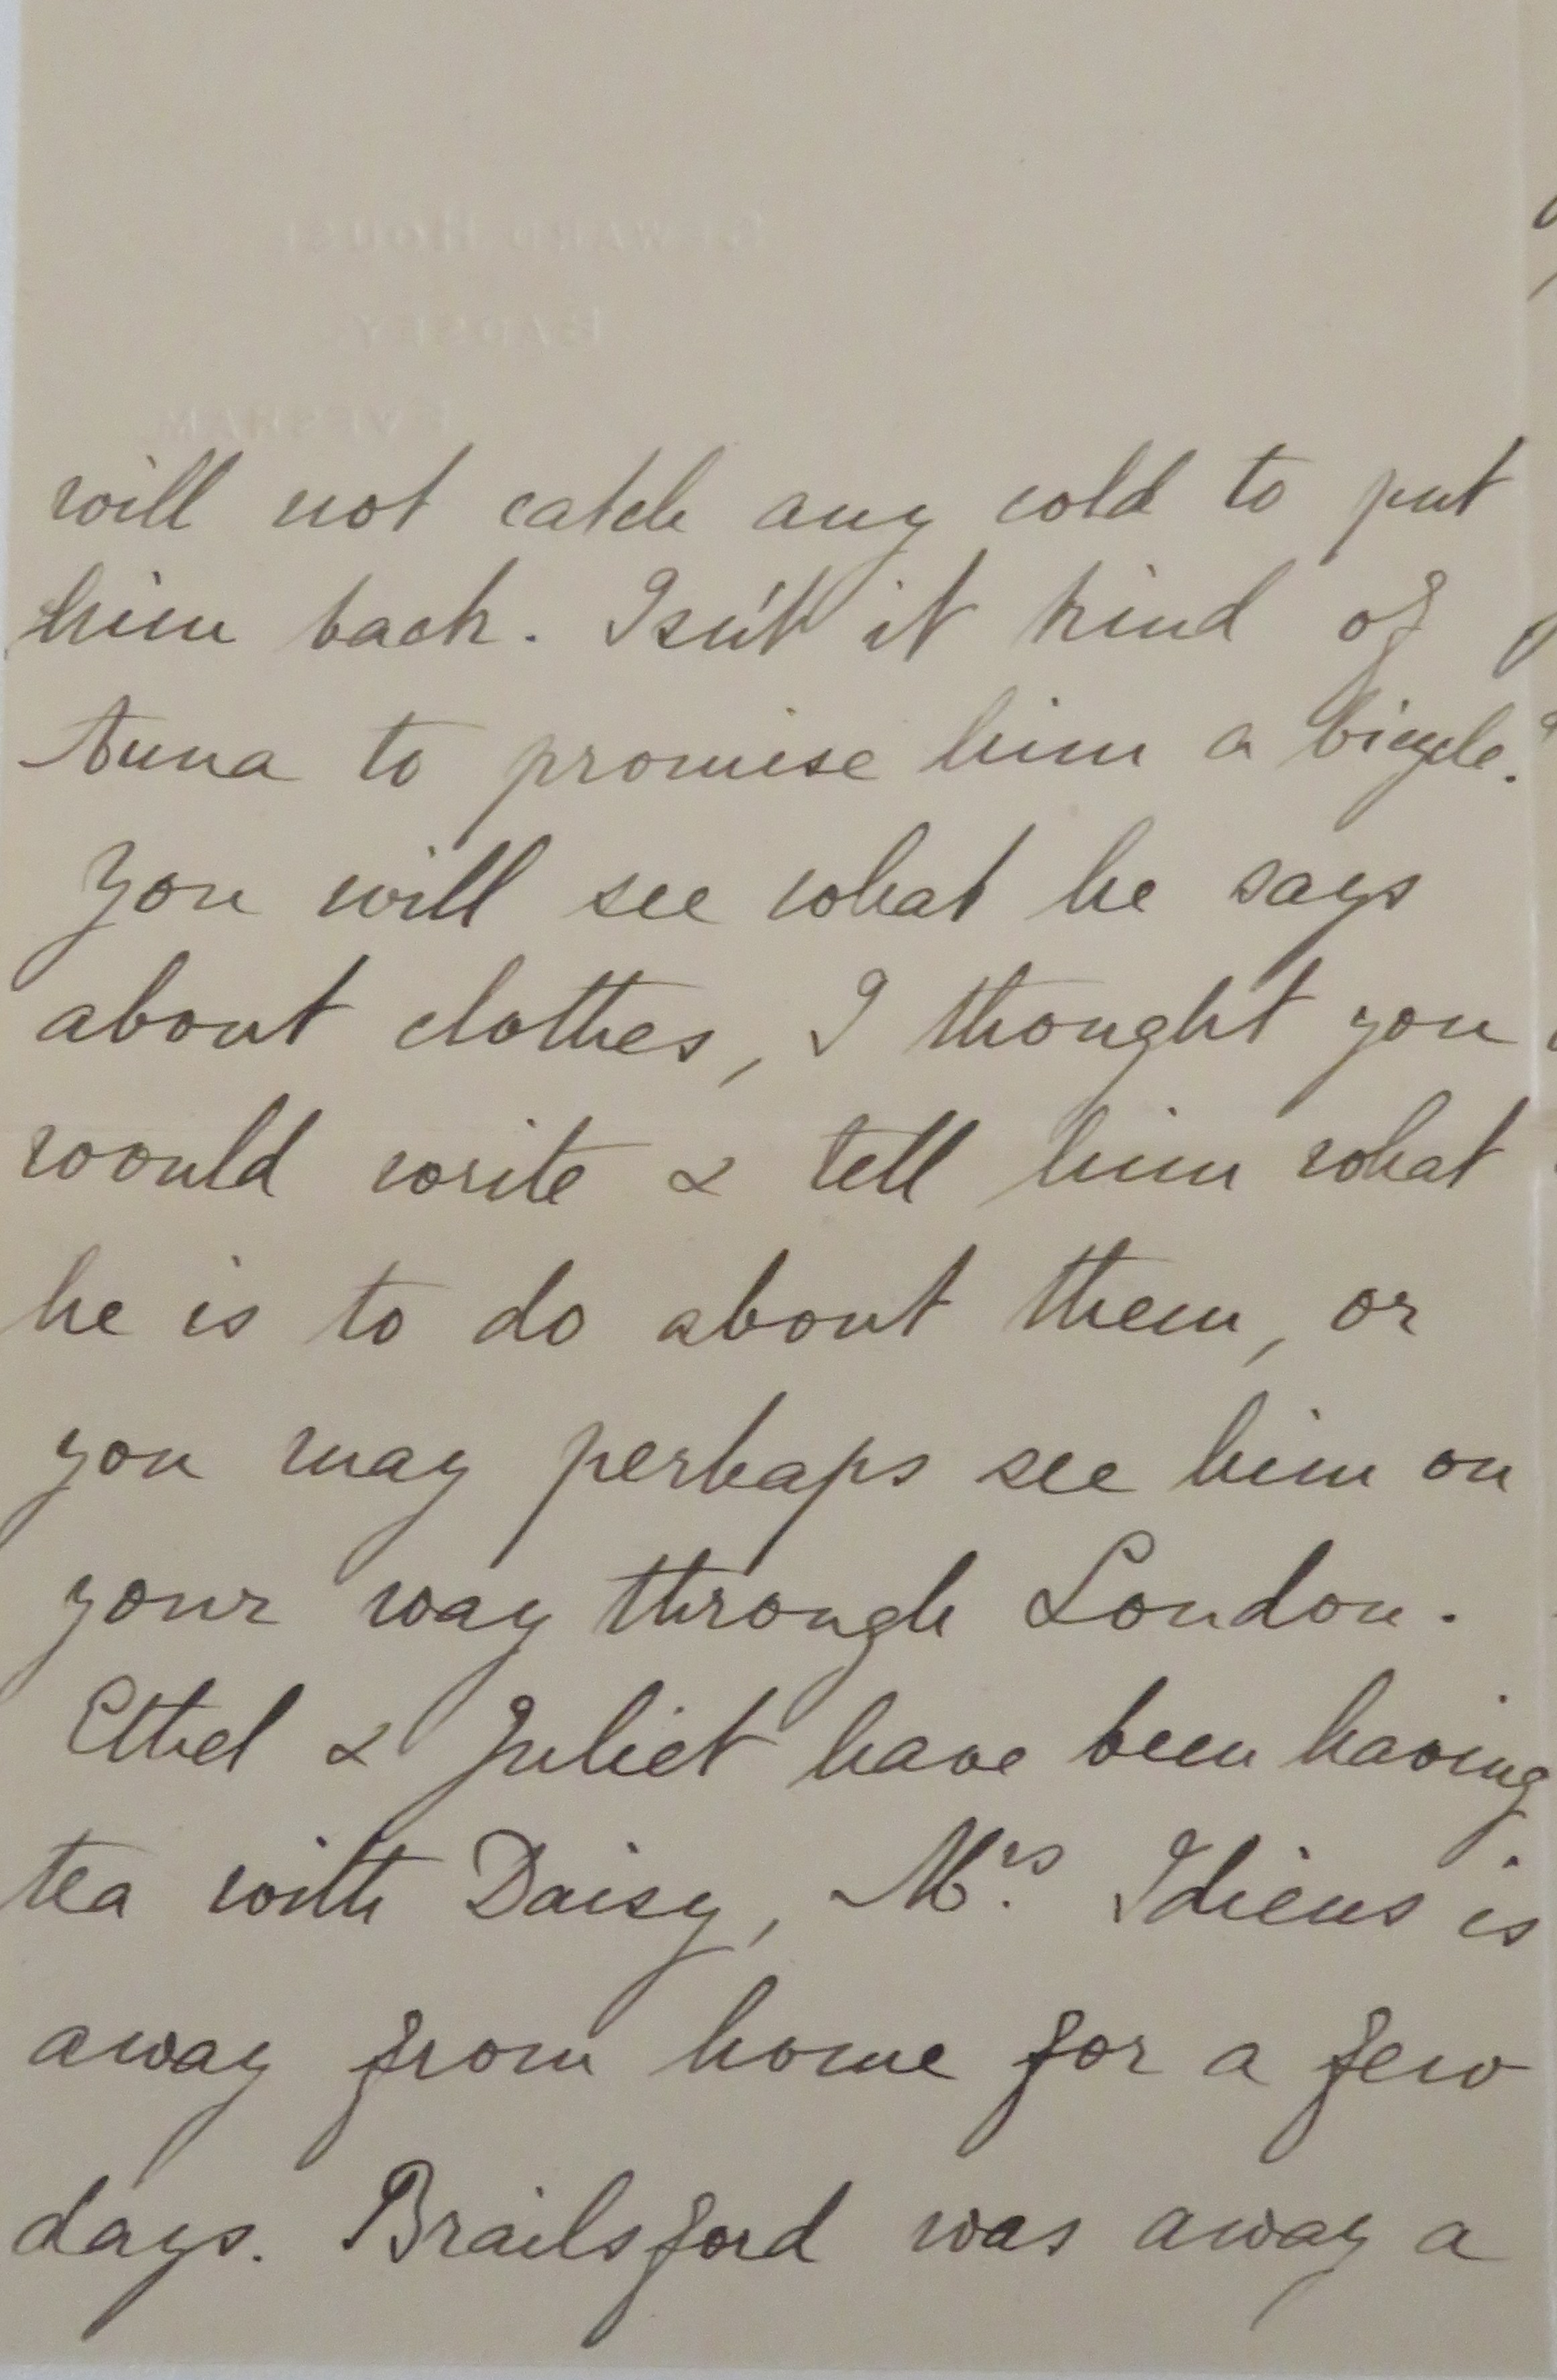 SEWARD HOUSE
BADSEY
EVESHAM
will not catch any cold to put
him back. Isn't it kind of
Anna to promise him a bicycle?
You will see what he says
about clothes, I thought you
would write & tell him what
he is to do about them, or
you may perhaps see him on
your way through London.
Ethel & Juliet have been having
tea with Daisy, Mrs. Idiens is
away from home for a few
days. Brailsford was away a